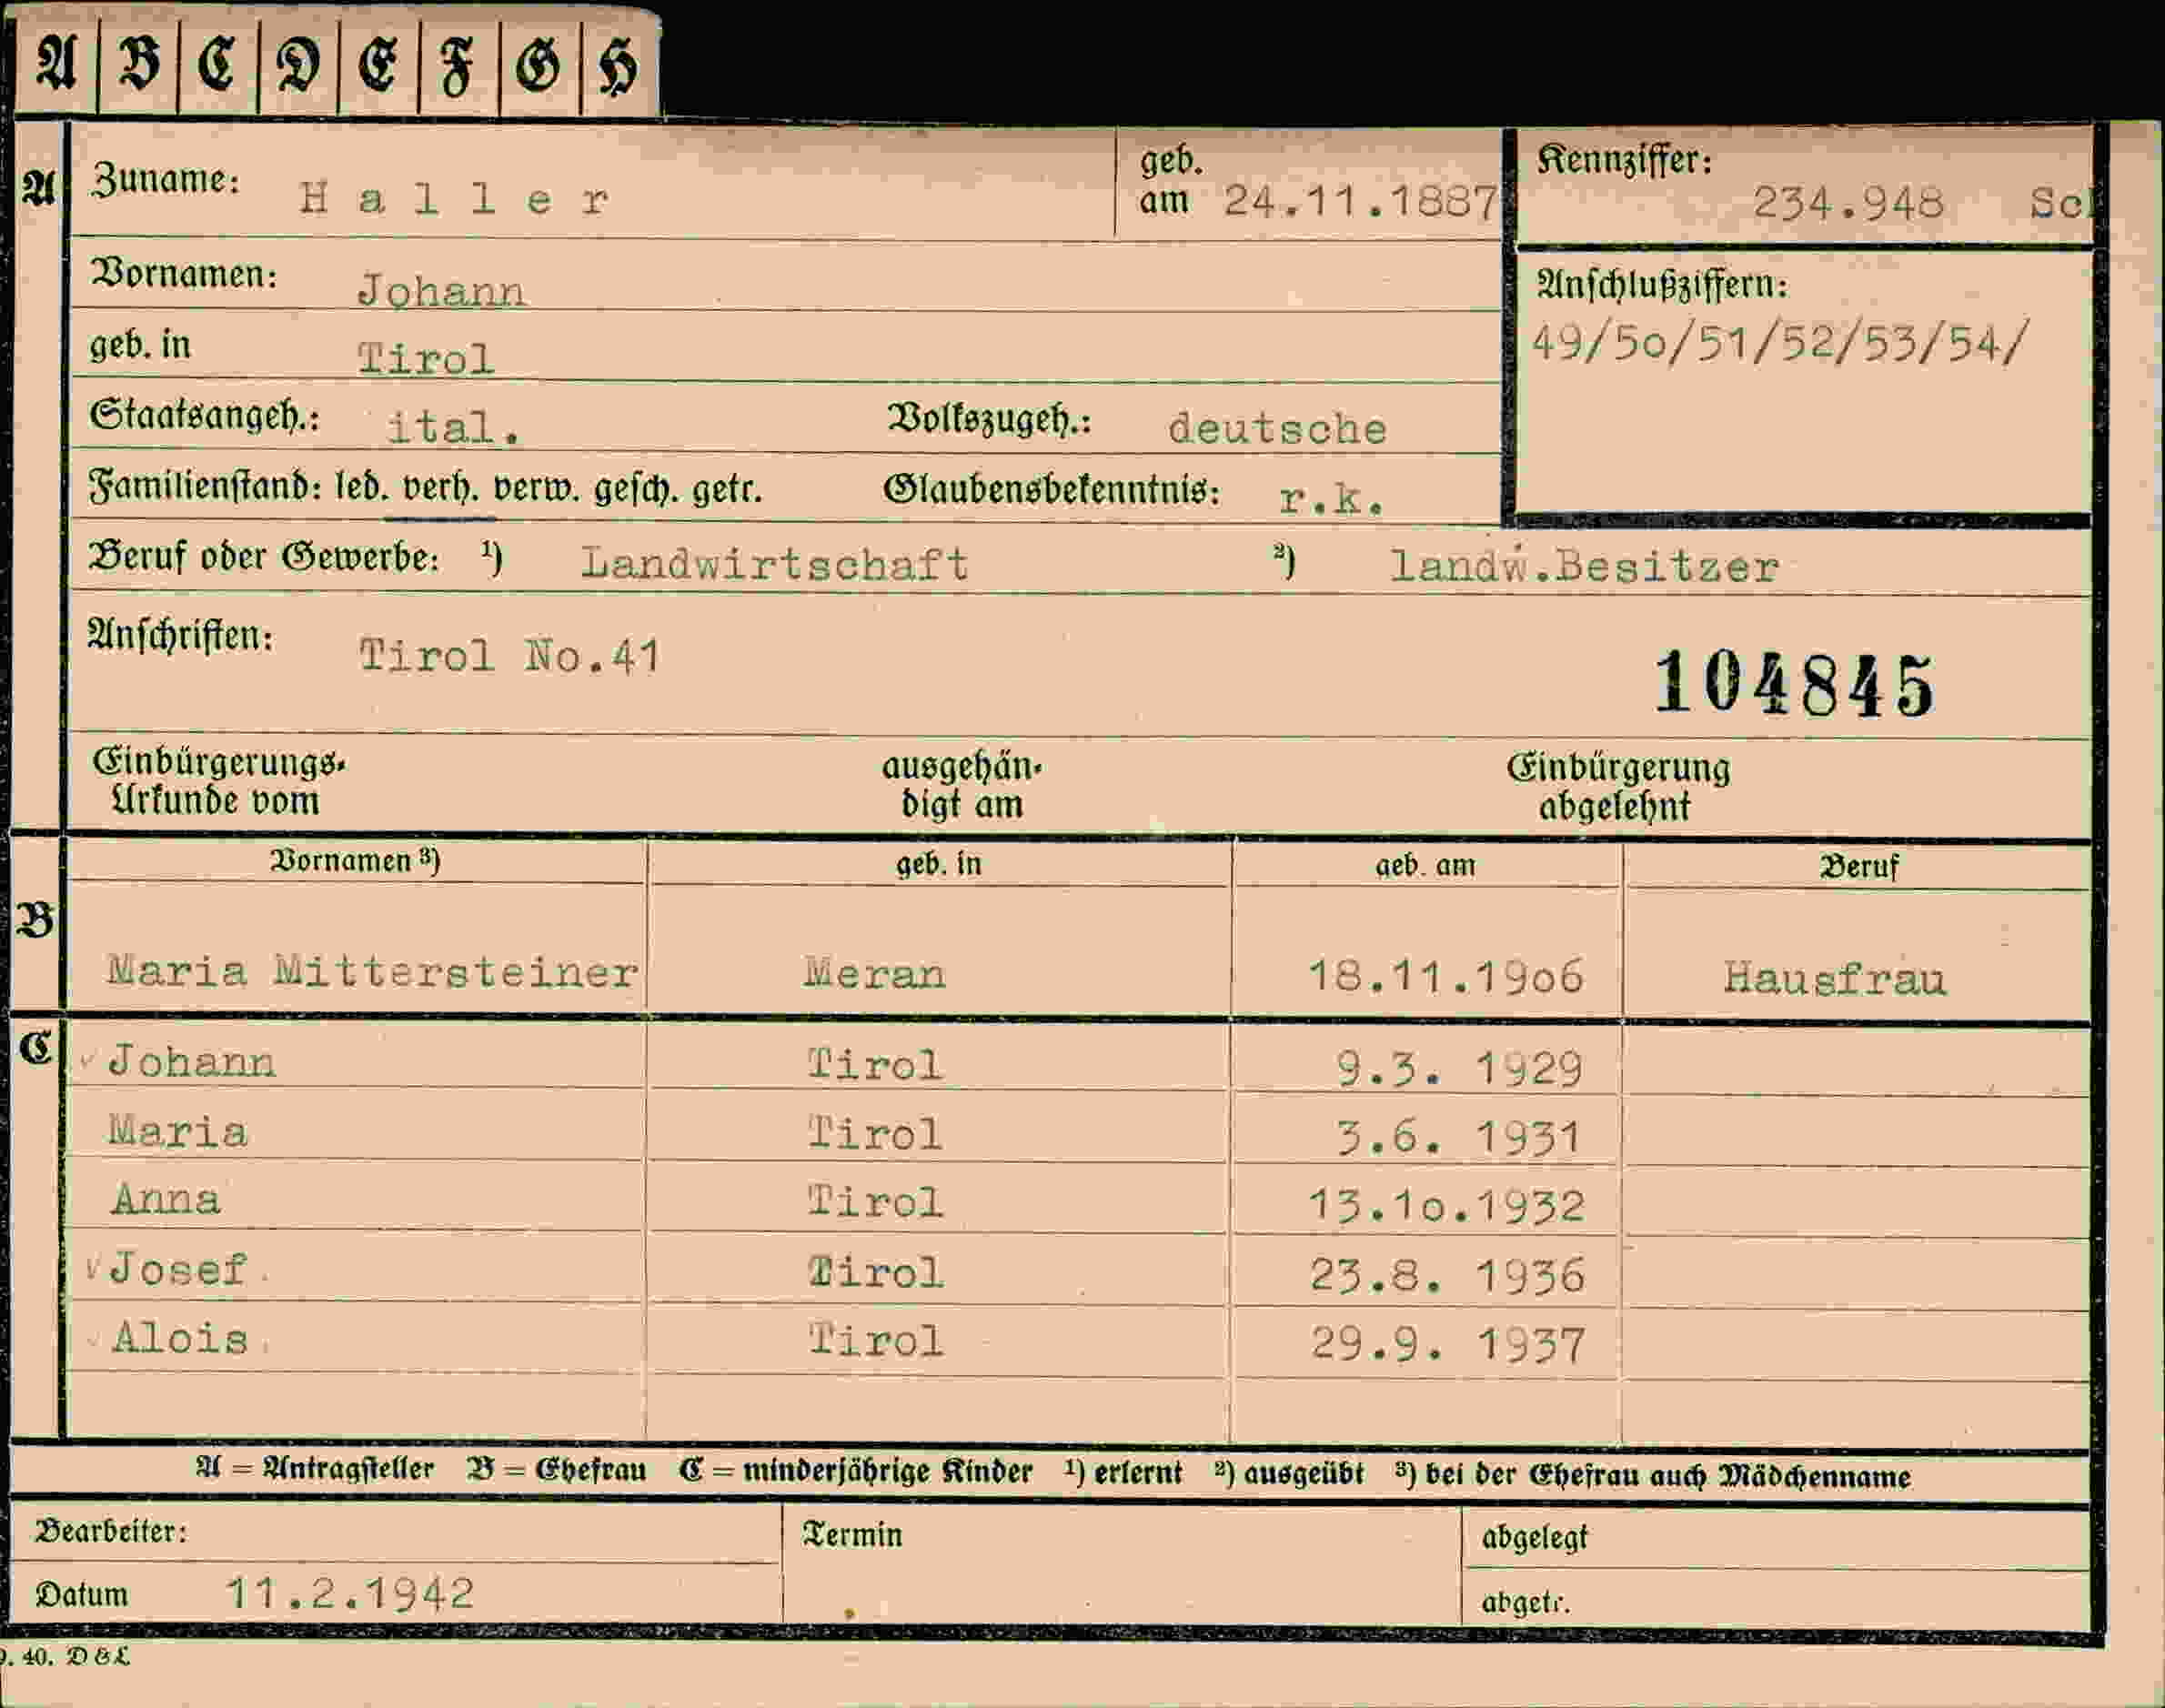 A B C D E F G H
A Zuname: Haller geb. am 24.11.1887 Kennziffer: 234.948
Vornamen: Johann Anschlußziffern:
geb. in Tirol 49/5o/51/52/53/54/
Staatsangeh.: ital. Volkszugeh.: deutsche
Familienstand: led. verh. verw. gesch. getr. Glaubensbekenntnis: r.k.
Beruf oder Gewerbe: ¹) Landwirtschaft ²) landw.Besitzer
Anschriften: Tirol No.41
104845
Einbürgerungs- ausgehän- Einbürgerung
Urkunde vom digt am abgelehnt
Vornamen ³) geb. in geb. am Beruf
B Maria Mittersteiner Meran 18.11.19o6 Hausfrau
C Johann Tirol 9.3. 1929
Maria Tirol 3.6. 1931
Anna Tirol 13.1o.1932
Josef Tirol 23.8. 1936
Alois Tirol 29.9. 1937
A = Antragsteller B = Ehefrau C = minderjährige Kinder ¹) erlernt ²) ausgeübt ³) bei der Ehefrau auch Mädchenname
Bearbeiter: Termin abgelegt
Datum 11.2.1942 abgetr.
40. D & L